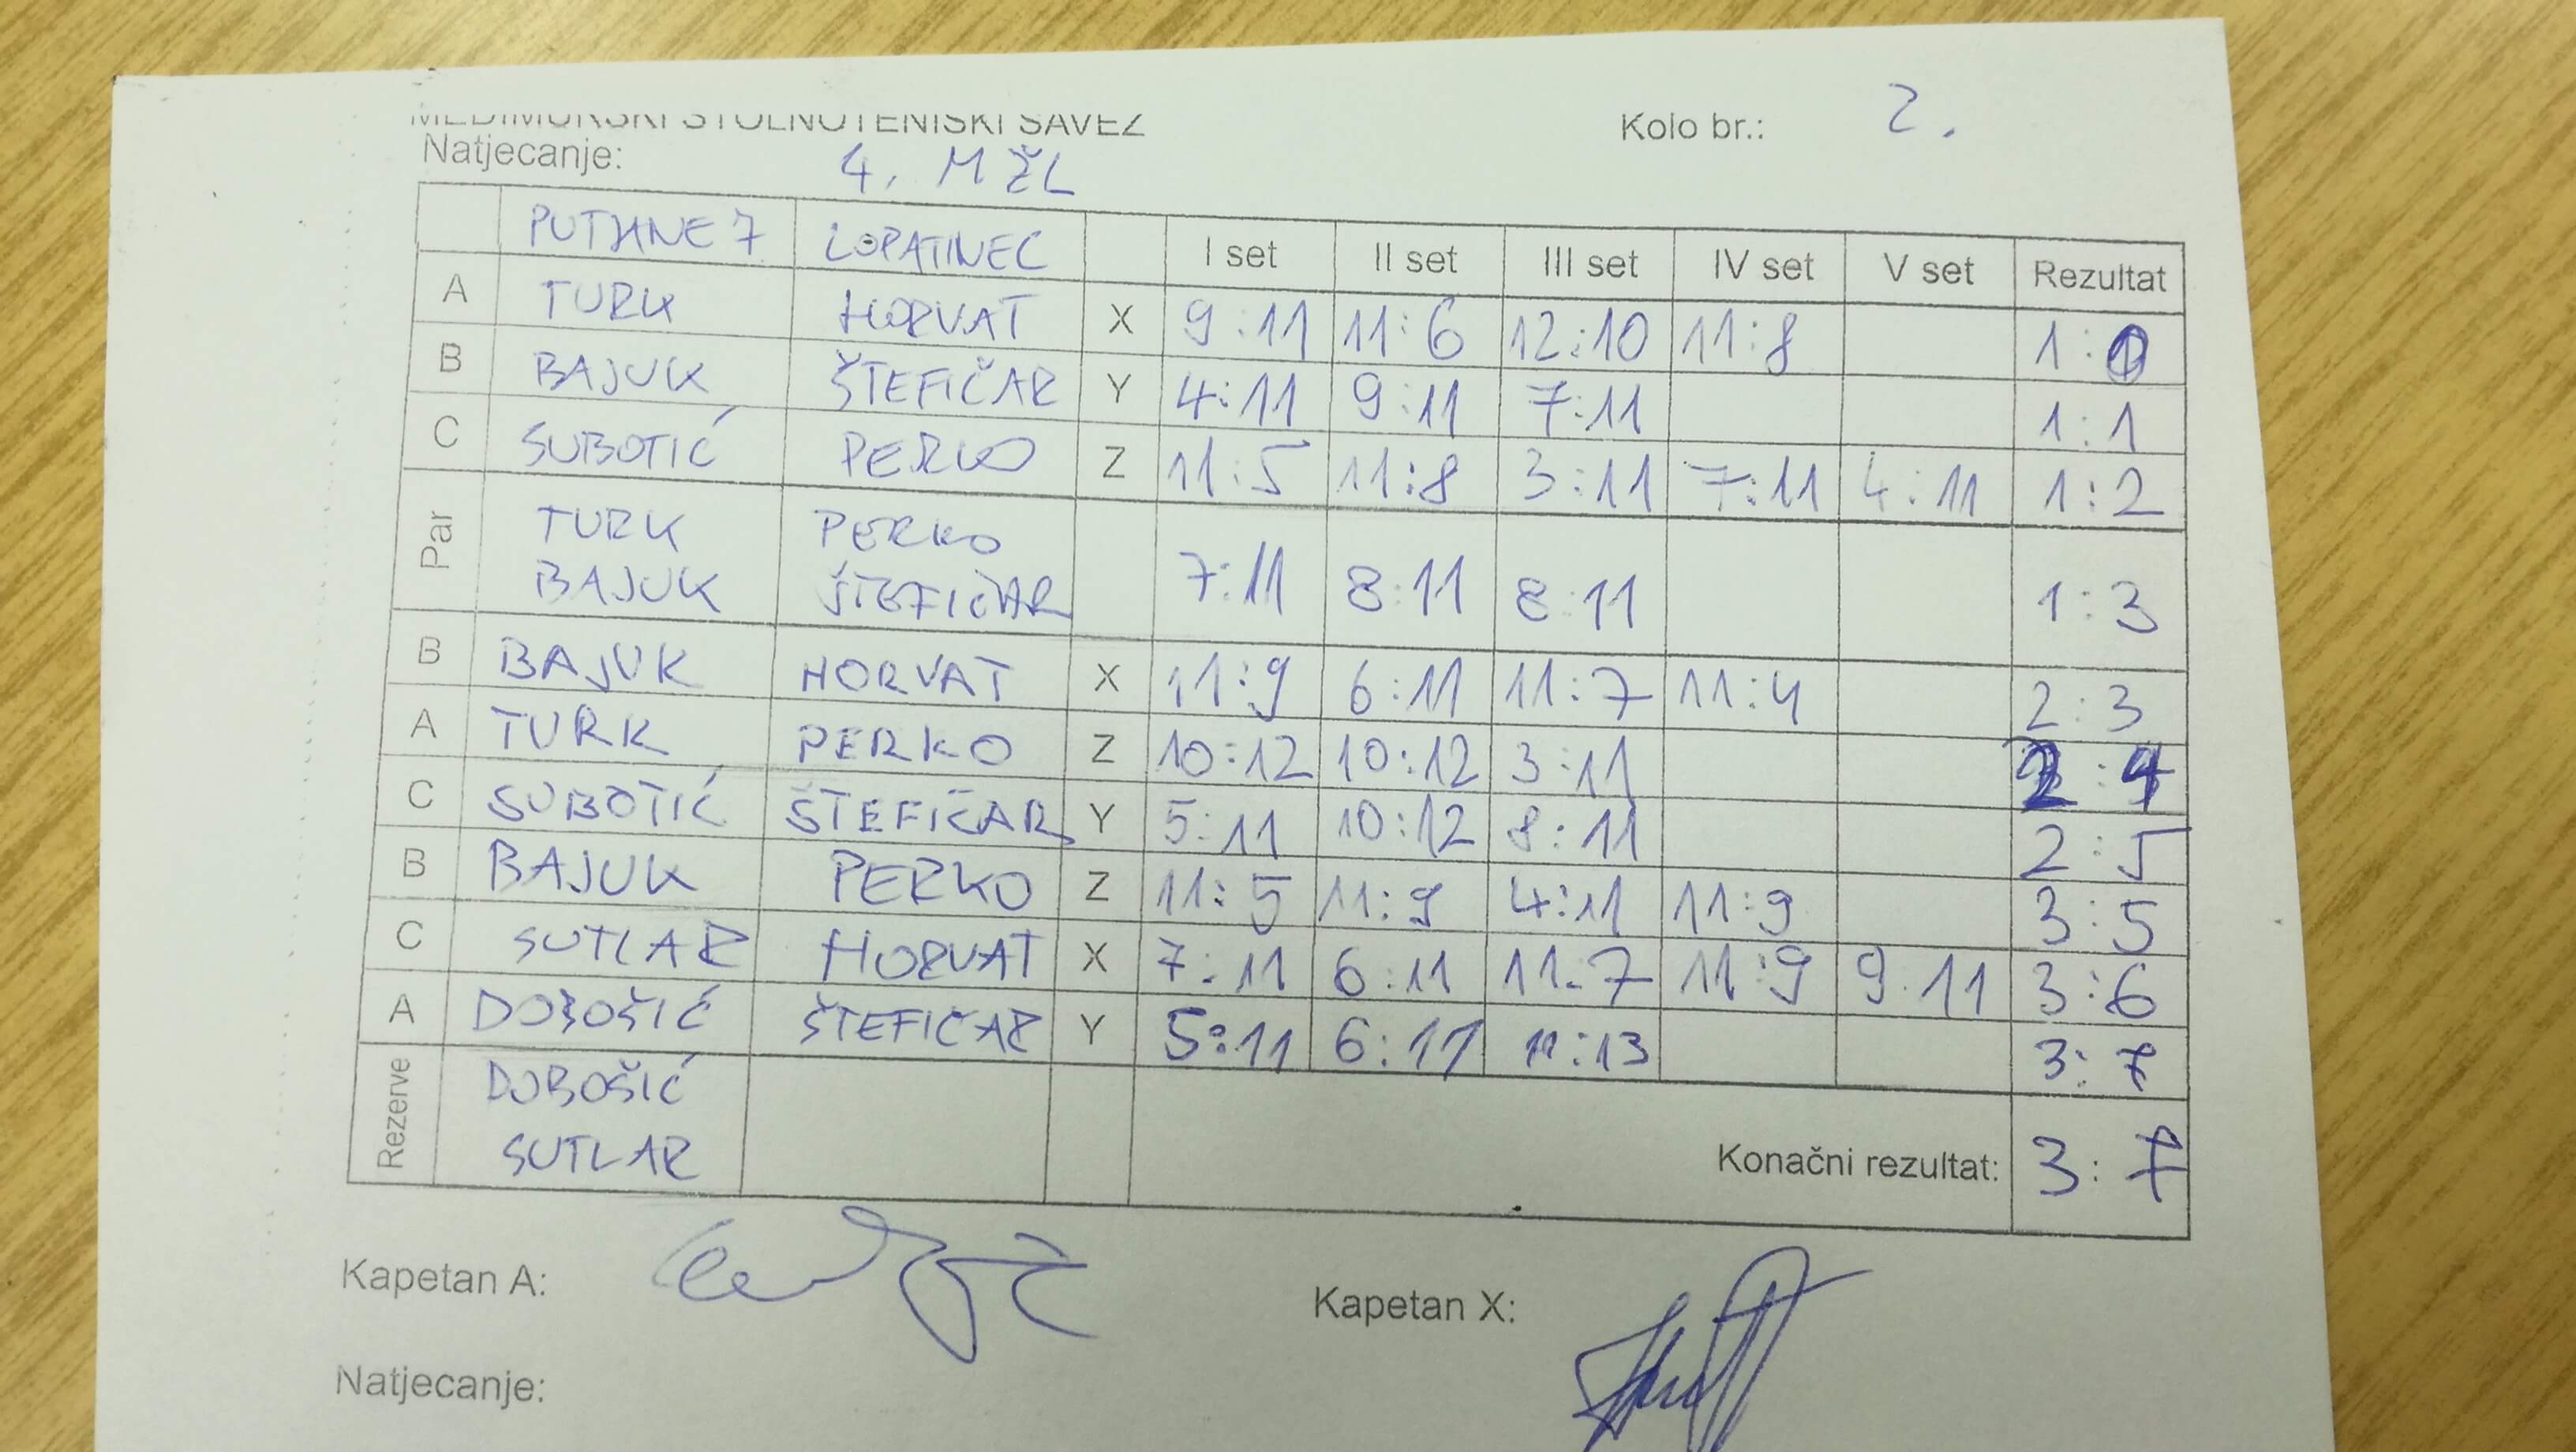 MEĐIMURSKI STOLNOTENISKI SAVEZ
Kolo br.: 2.
Natjecanje: 4. MŽL
PUTJANE 7 LOPATINEC I set II set III set IV set V set Rezultat
A TURK HORVAT X 9:11 11:6 12:10 11:8 1:0
B BAJUK ŠTEFIČAR Y 4:11 9:11 7:11 1:1
C SUBOTIĆ PERKO Z 11:5 11:8 3:11 7:11 4:11 1:2
Par TURK BAJUK PERKO ŠTEFIČAR 7:11 8:11 8:11 1:3
B BAJUK HORVAT X 11:9 6:11 11:7 11:4 2:3
A TURK PERKO Z 10:12 10:12 3:11 2:4
C SUBOTIĆ ŠTEFIČAR Y 5:11 10:12 8:11 2:5
B BAJUK PERKO Z 11:5 11:9 4:11 11:9 3:5
C SUTLAR HORVAT X 7:11 6:11 11:7 11:9 9:11 3:6
A DOBOŠIĆ ŠTEFIČAR Y 5:11 6:11 11:13 3:7
Rezerve DOBOŠIĆ SUTLAR
Konačni rezultat: 3:7
Kapetan A:
Kapetan X:
Natjecanje: